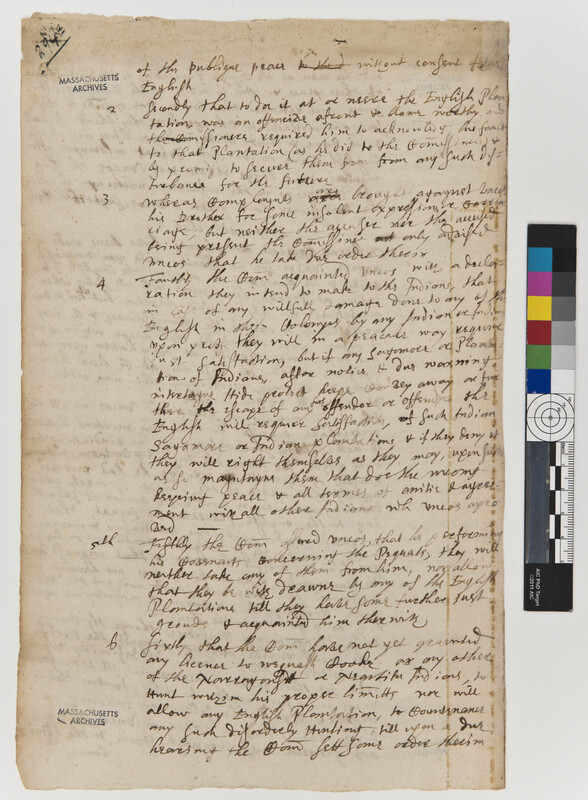 204
MASSACHUSETTS
ARCHIVES
of the publique peace without consent of the
English
2 Secondly that to doe it at or neere the English Plan
tation, was an offencive afront & blame worthy and
the Comissioners required him to acknowledg his fault
to that Plantation (as he did to the Comissioners) &
by promise to secure them from any such Dis-
turbance for the future
3 Whereas Complaynts are brought against Uncas
his Brother for some insolent expressions & Carri
ciage but neither the accuser nor the accused
being present the Comissioners only advised
Uncas that he take due order therin
4 Fourthly the Com acquainted Uncas with a decla
ration they intend to make to the Indians, that
in case of any willfull damage done to any of the
English in their Colonyes by any Indian or Indians
upon they will in a peaceable way require
just satisfaction, but if any Sagamore or Planta
tion of Indians, after notice & due warning
intertayne hide protect keepe Convey away or furt
ther the escape of any offender or offenders the
English will require satisfaction of such Indian
Sagamore or Indian Plantations & if they deny it
they will right themselves as they may, upon such
as so maintayne them that doe the wrong
keeping peace & all termes of amitie & agree
ment with all other Indians wch Uncas apro
ved
5th Fifthly the Com assured Uncas, that he performing
his Covenants Concerning the Pequats, they will
neither take any of them from him, nor allow
that they be drawne by any of the English
Plantations till they have some further just
grounds & acquainted him therwith
6 Sixth that the Com have not yet graunted
any licence to Wequash Cooke or any other
of the Narragansett or Nyantick Indians, to
Hunt within his proper limitts nor will
allow any English Plantation, to Countenance
any such disorderly Hunting, till upon a due
hearing the Com sett some order therin
MASSACHUSETTS
ARCHIVES
AIC PhD Target